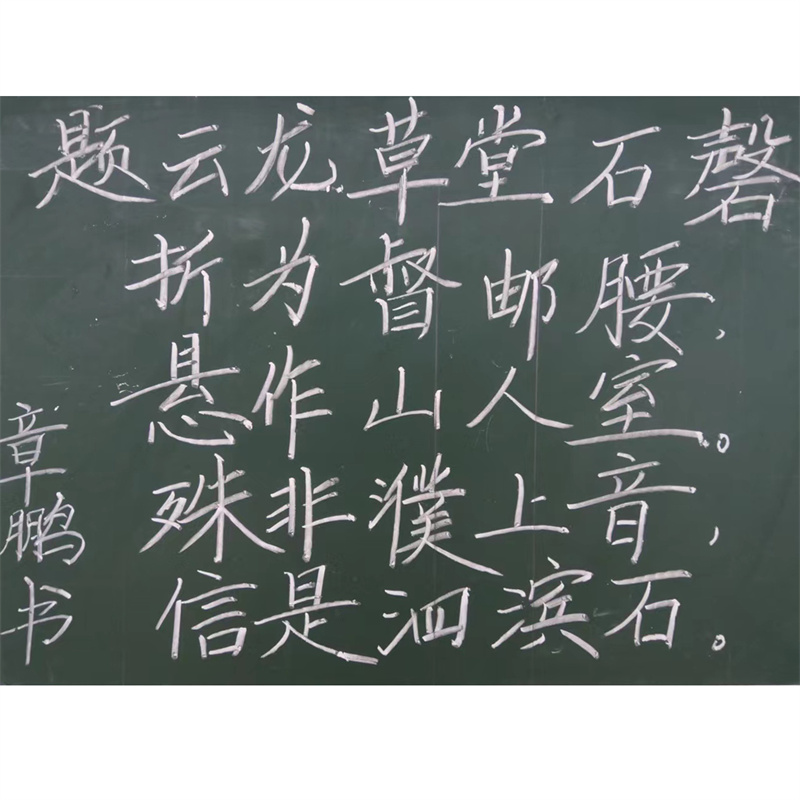 题云龙草堂石磬
折为督邮腰，
悬作山人室。
殊非濮上音，
信是泗滨石。
章鹏书